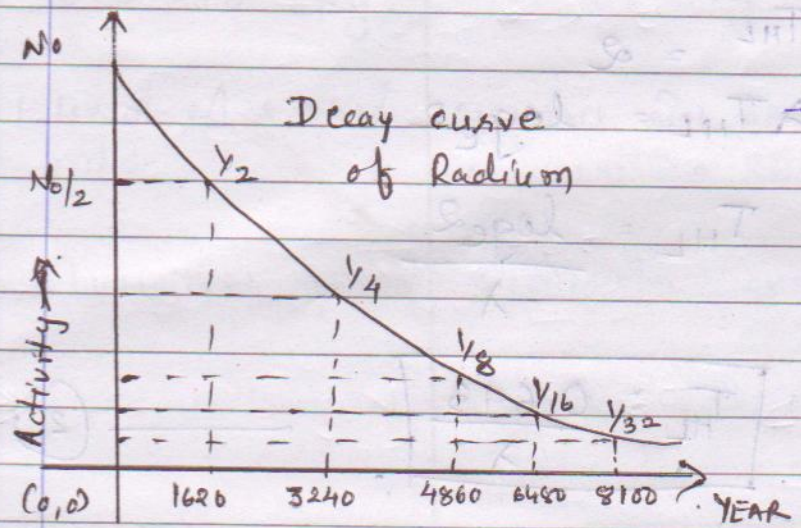 N₀
Decay curve
of Radium
N₀/2
1/2
1/4
1/8
1/16
1/32
Activity →
(0,0) 1620 3240 4860 6480 8100 YEAR